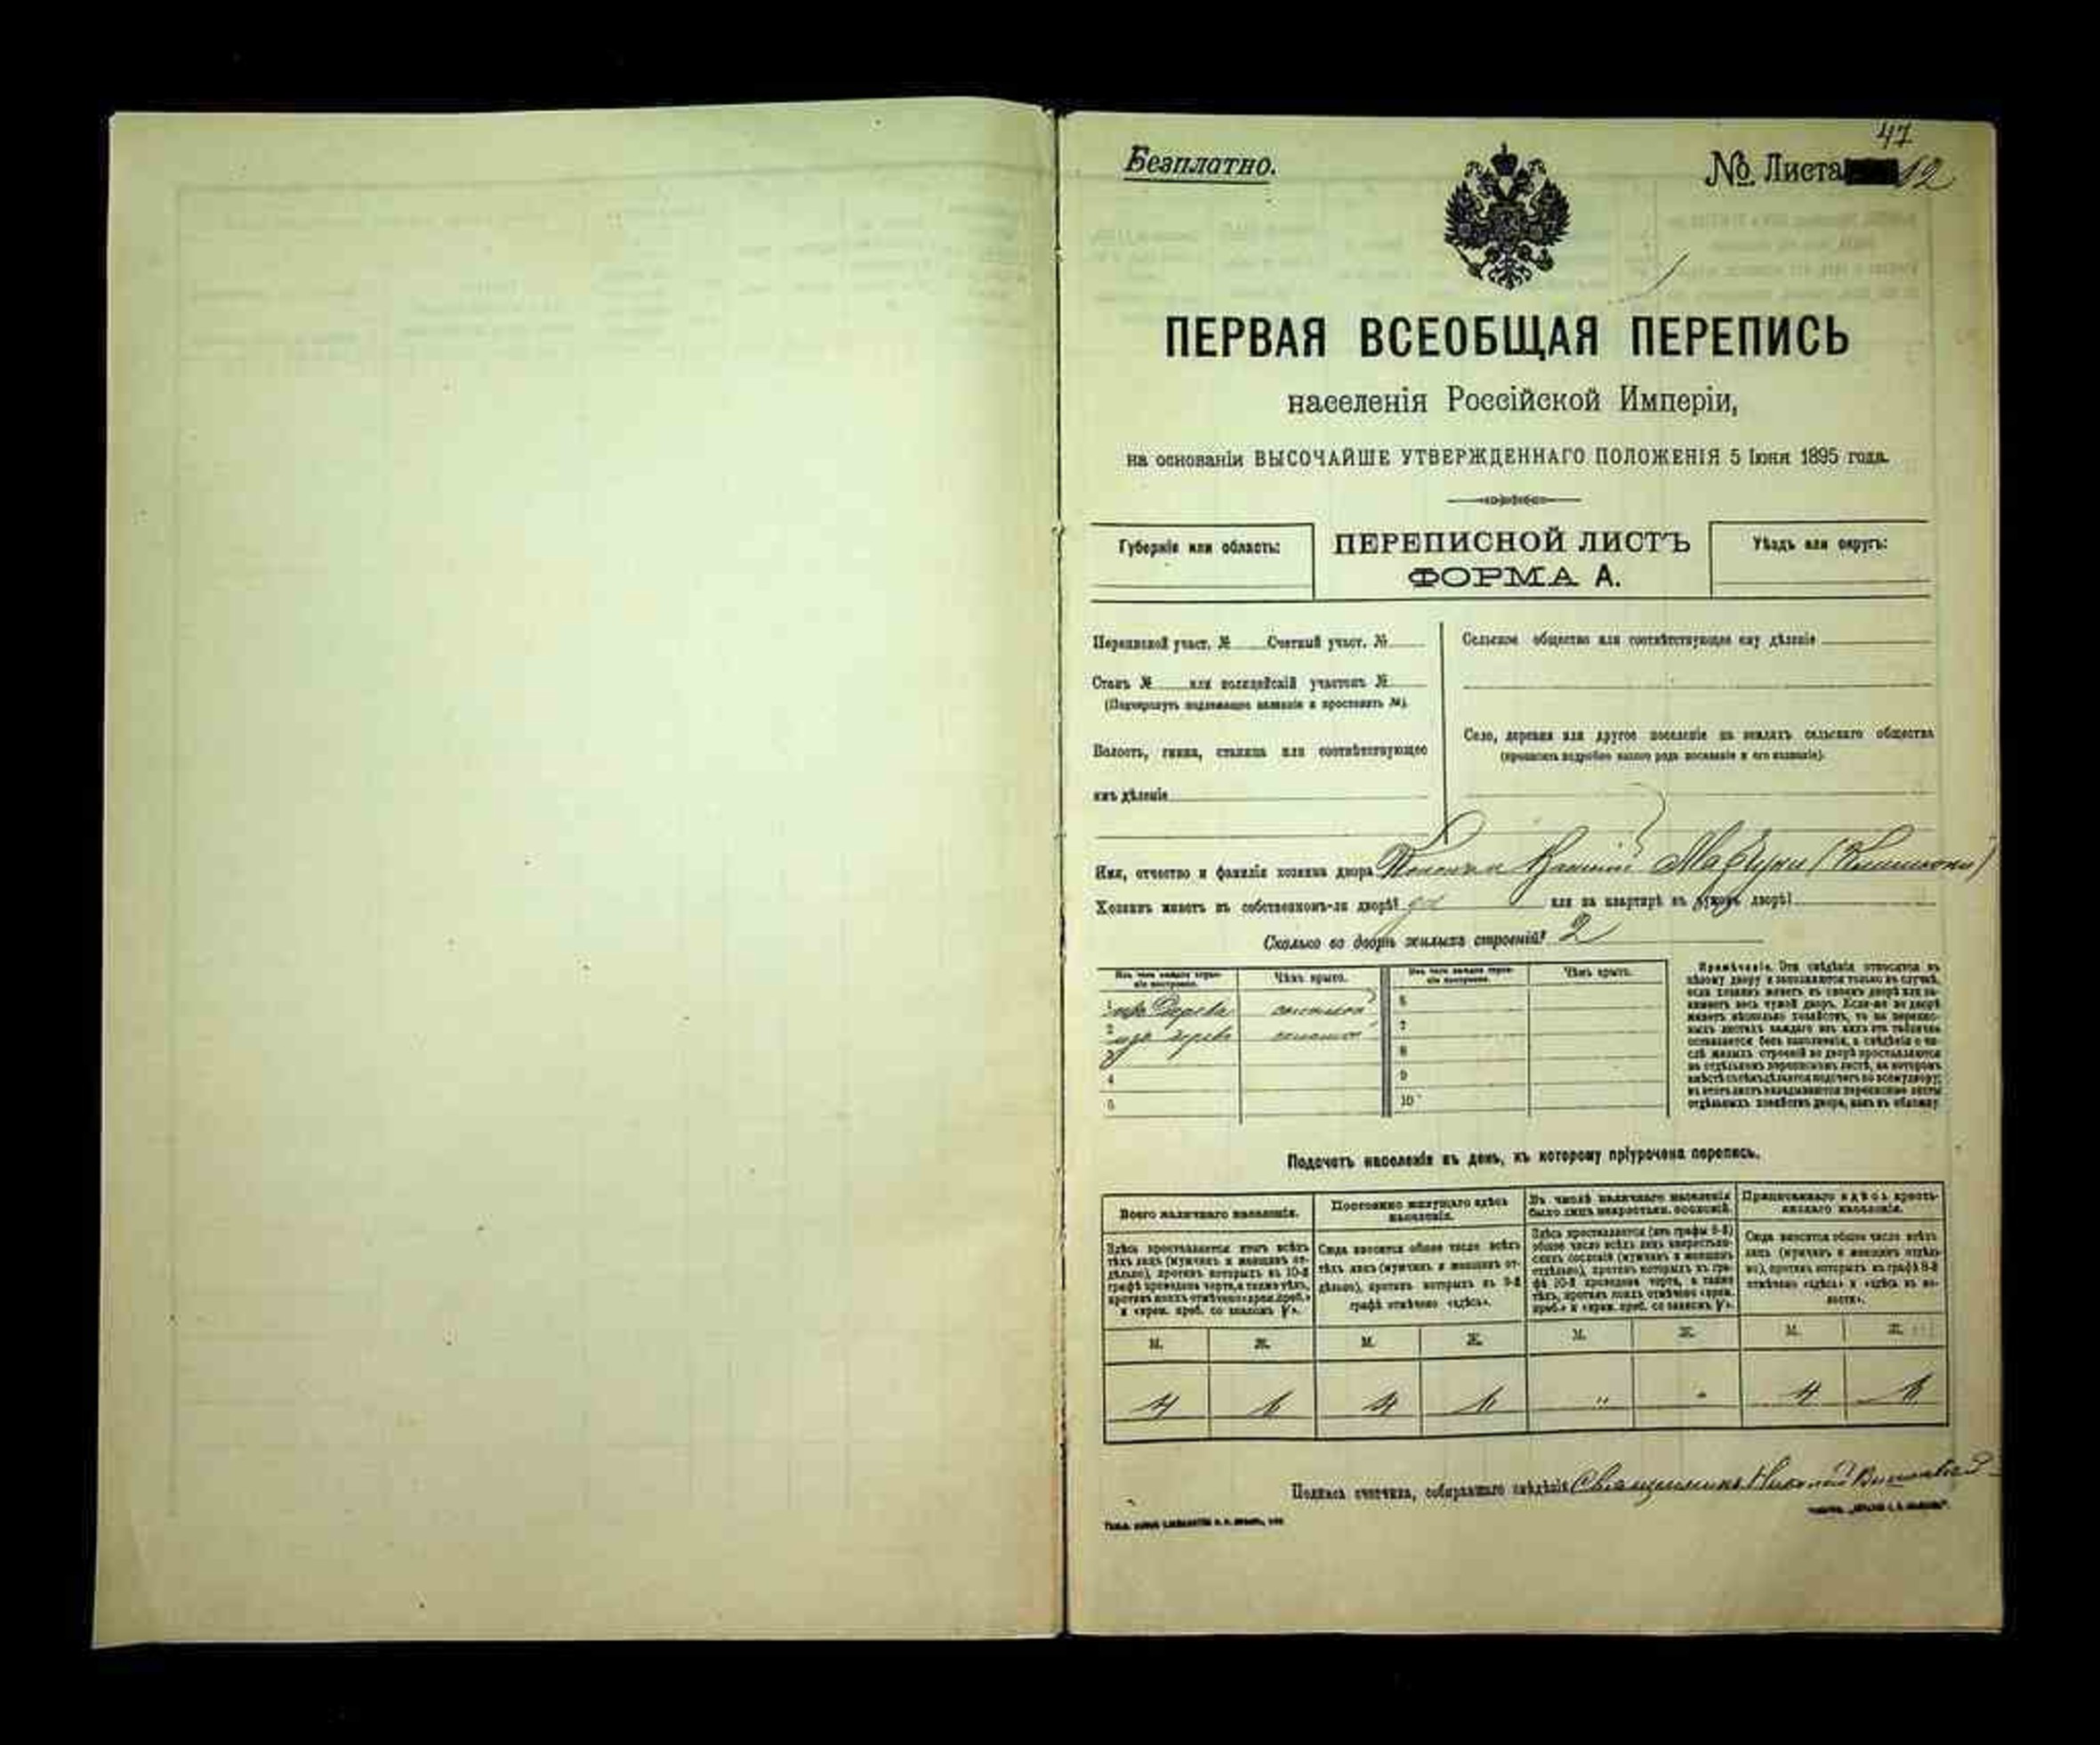 47
Безплатно.
№ Листа 12
ПЕРВАЯ ВСЕОБЩАЯ ПЕРЕПИСЬ
населенія Россійской Имперіи,
на основаніи ВЫСОЧАЙШЕ УТВЕРЖДЕННАГО ПОЛОЖЕНІЯ 5 Іюня 1895 года.
Губернія или область:
ПЕРЕПИСНОЙ ЛИСТЪ
ФОРМА А.
Уѣздъ или округъ:
Переписной участ. № Счетный участ. №
Сельское общество или соотвѣтствующее ему дѣленіе
Станъ № или полицейскій участокъ №
(Подчеркнуть подлежащее названіе и проставить №).
Волость, гмина, станица или соотвѣтствующее
имъ дѣленіе
Село, деревня или другое поселеніе на земляхъ сельскаго общества
(прописать подробно какого рода поселеніе и его названіе).
Имя, отчество и фамилія хозяина двора
Хозяинъ живетъ въ собственномъ-ли дворѣ? да или на квартирѣ въ чужомъ дворѣ?
Сколько во дворѣ жилыхъ строеній? 2
Изъ чего каждое строеніе построено.
Чѣмъ крыто.
Изъ чего каждое строеніе построено.
Чѣмъ крыто.
1 изъ дерева соломой
2 изъ дерева соломой
4
5
6
7
8
9
10
Примѣчаніе. Эти свѣдѣнія относятся къ
цѣлому двору и заполняются только въ случаѣ,
если хозяинъ живетъ въ своемъ дворѣ или за-
нимаетъ весь чужой дворъ. Если-же во дворѣ
живетъ нѣсколько хозяйствъ, то на перепис-
ныхъ листахъ каждаго изъ нихъ эта табличка
оставляется безъ заполненія, а свѣдѣнія о чи-
слѣ жилыхъ строеній во дворѣ проставляются
на отдѣльномъ переписномъ листѣ, на которомъ
вмѣстѣ съ тѣмъ дѣлается подсчетъ по всему двору;
въ этотъ листъ вкладываются переписные листы
отдѣльныхъ хозяйствъ двора, какъ въ обложку.
Подсчетъ населенія въ день, къ которому пріурочена перепись.
Всего наличнаго населенія.
Постоянно живущаго здѣсь
населенія.
Въ числѣ наличнаго населенія
было лицъ некрестьян. сословій.
Приписаннаго здѣсь кресть-
янскаго населенія.
Здѣсь проставляется итогъ всѣхъ
тѣхъ лицъ (мужчинъ и женщинъ от-
дѣльно), противъ которыхъ въ 10-й
графѣ проведена черта, а также тѣхъ,
противъ коихъ отмѣчено «врем. преб.»
и «врем. преб. со знакомъ V».
Сюда вносится общее число всѣхъ
тѣхъ лицъ (мужчинъ и женщинъ от-
дѣльно), противъ которыхъ въ 9-й
графѣ отмѣчено «здѣсь».
Здѣсь проставляется (изъ графы 6-й)
общее число всѣхъ лицъ некрестьян-
скихъ сословій (мужчинъ и женщинъ
отдѣльно), противъ которыхъ въ гра-
фѣ 10-й проведена черта, а также
тѣхъ, противъ коихъ отмѣчено «врем.
преб.» и «врем. преб. со знакомъ V».
Сюда вносится общее число всѣхъ
лицъ (мужчинъ и женщинъ отдѣль-
но), противъ которыхъ въ графѣ 8-й
отмѣчено «здѣсь» и «здѣсь въ во-
лости».
М. Ж. М. Ж. М. Ж. М. Ж.
4 4 " " 4
Подпись счетчика, собиравшаго свѣдѣнія Священникъ Николай